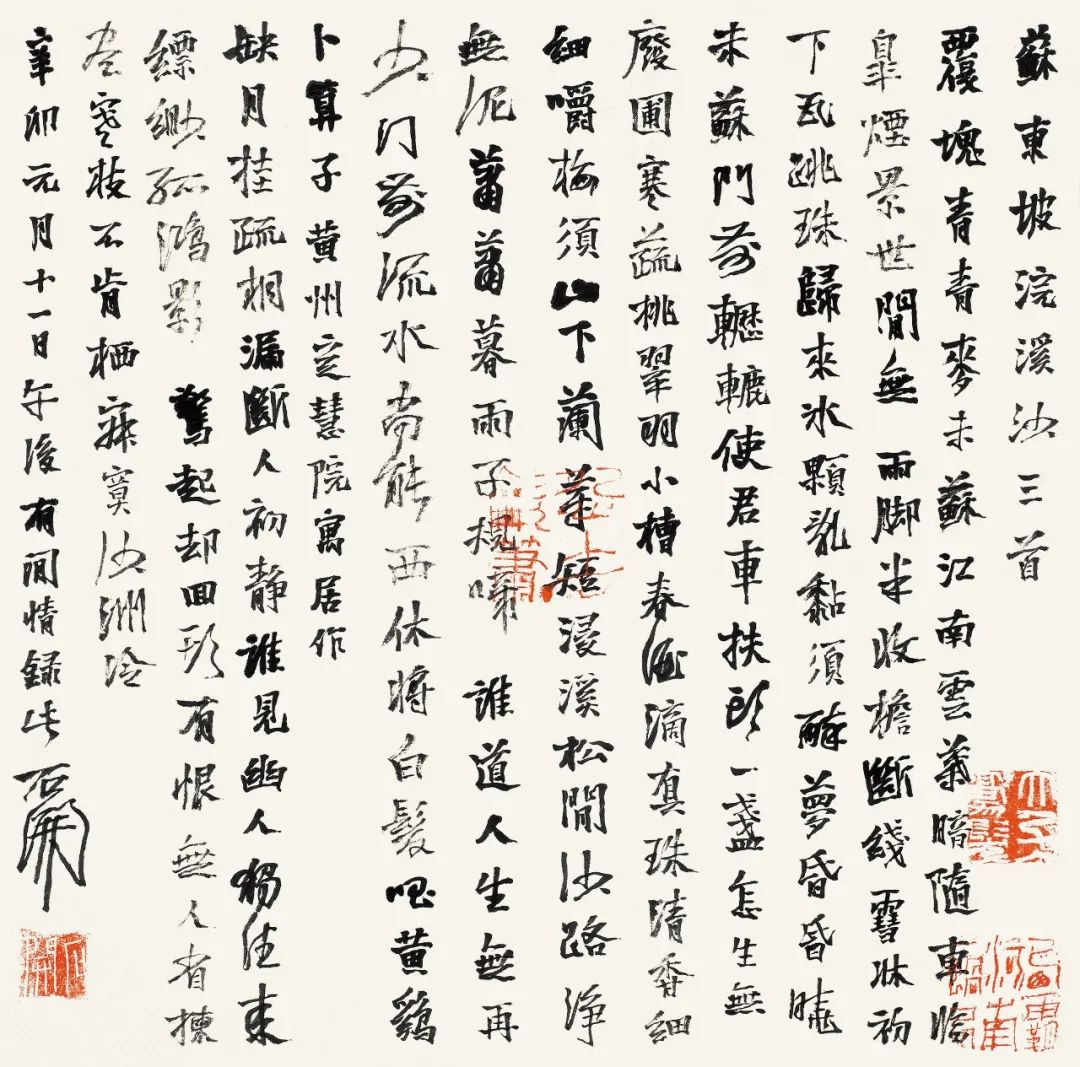 蘇東坡浣溪沙三首
覆塊青青麥未蘇江南雲葉暗隨車臨
皐煙景世間無 雨脚半收檐斷綫雪牀初
下瓦跳珠歸來冰顆亂黏須 醉夢昏昏曉
未蘇門前轣轆使君車扶頭一盞怎生無
廢圃寒蔬挑翠羽小槽春酒滴真珠清香細
細嚼梅須山下蘭芽短浸溪松間沙路淨
無泥蕭蕭暮雨子規啼 誰道人生無再
少門前流水尚能西休將白髮唱黄鷄
卜算子黄州定慧院寓居作
缺月挂疏桐漏斷人初静誰見幽人獨往來
縹緲孤鴻影 驚起却回頭有恨無人省揀
盡寒枝不肯栖寂寞沙洲冷
辛卯元月十一日午後有閒情録此 石開